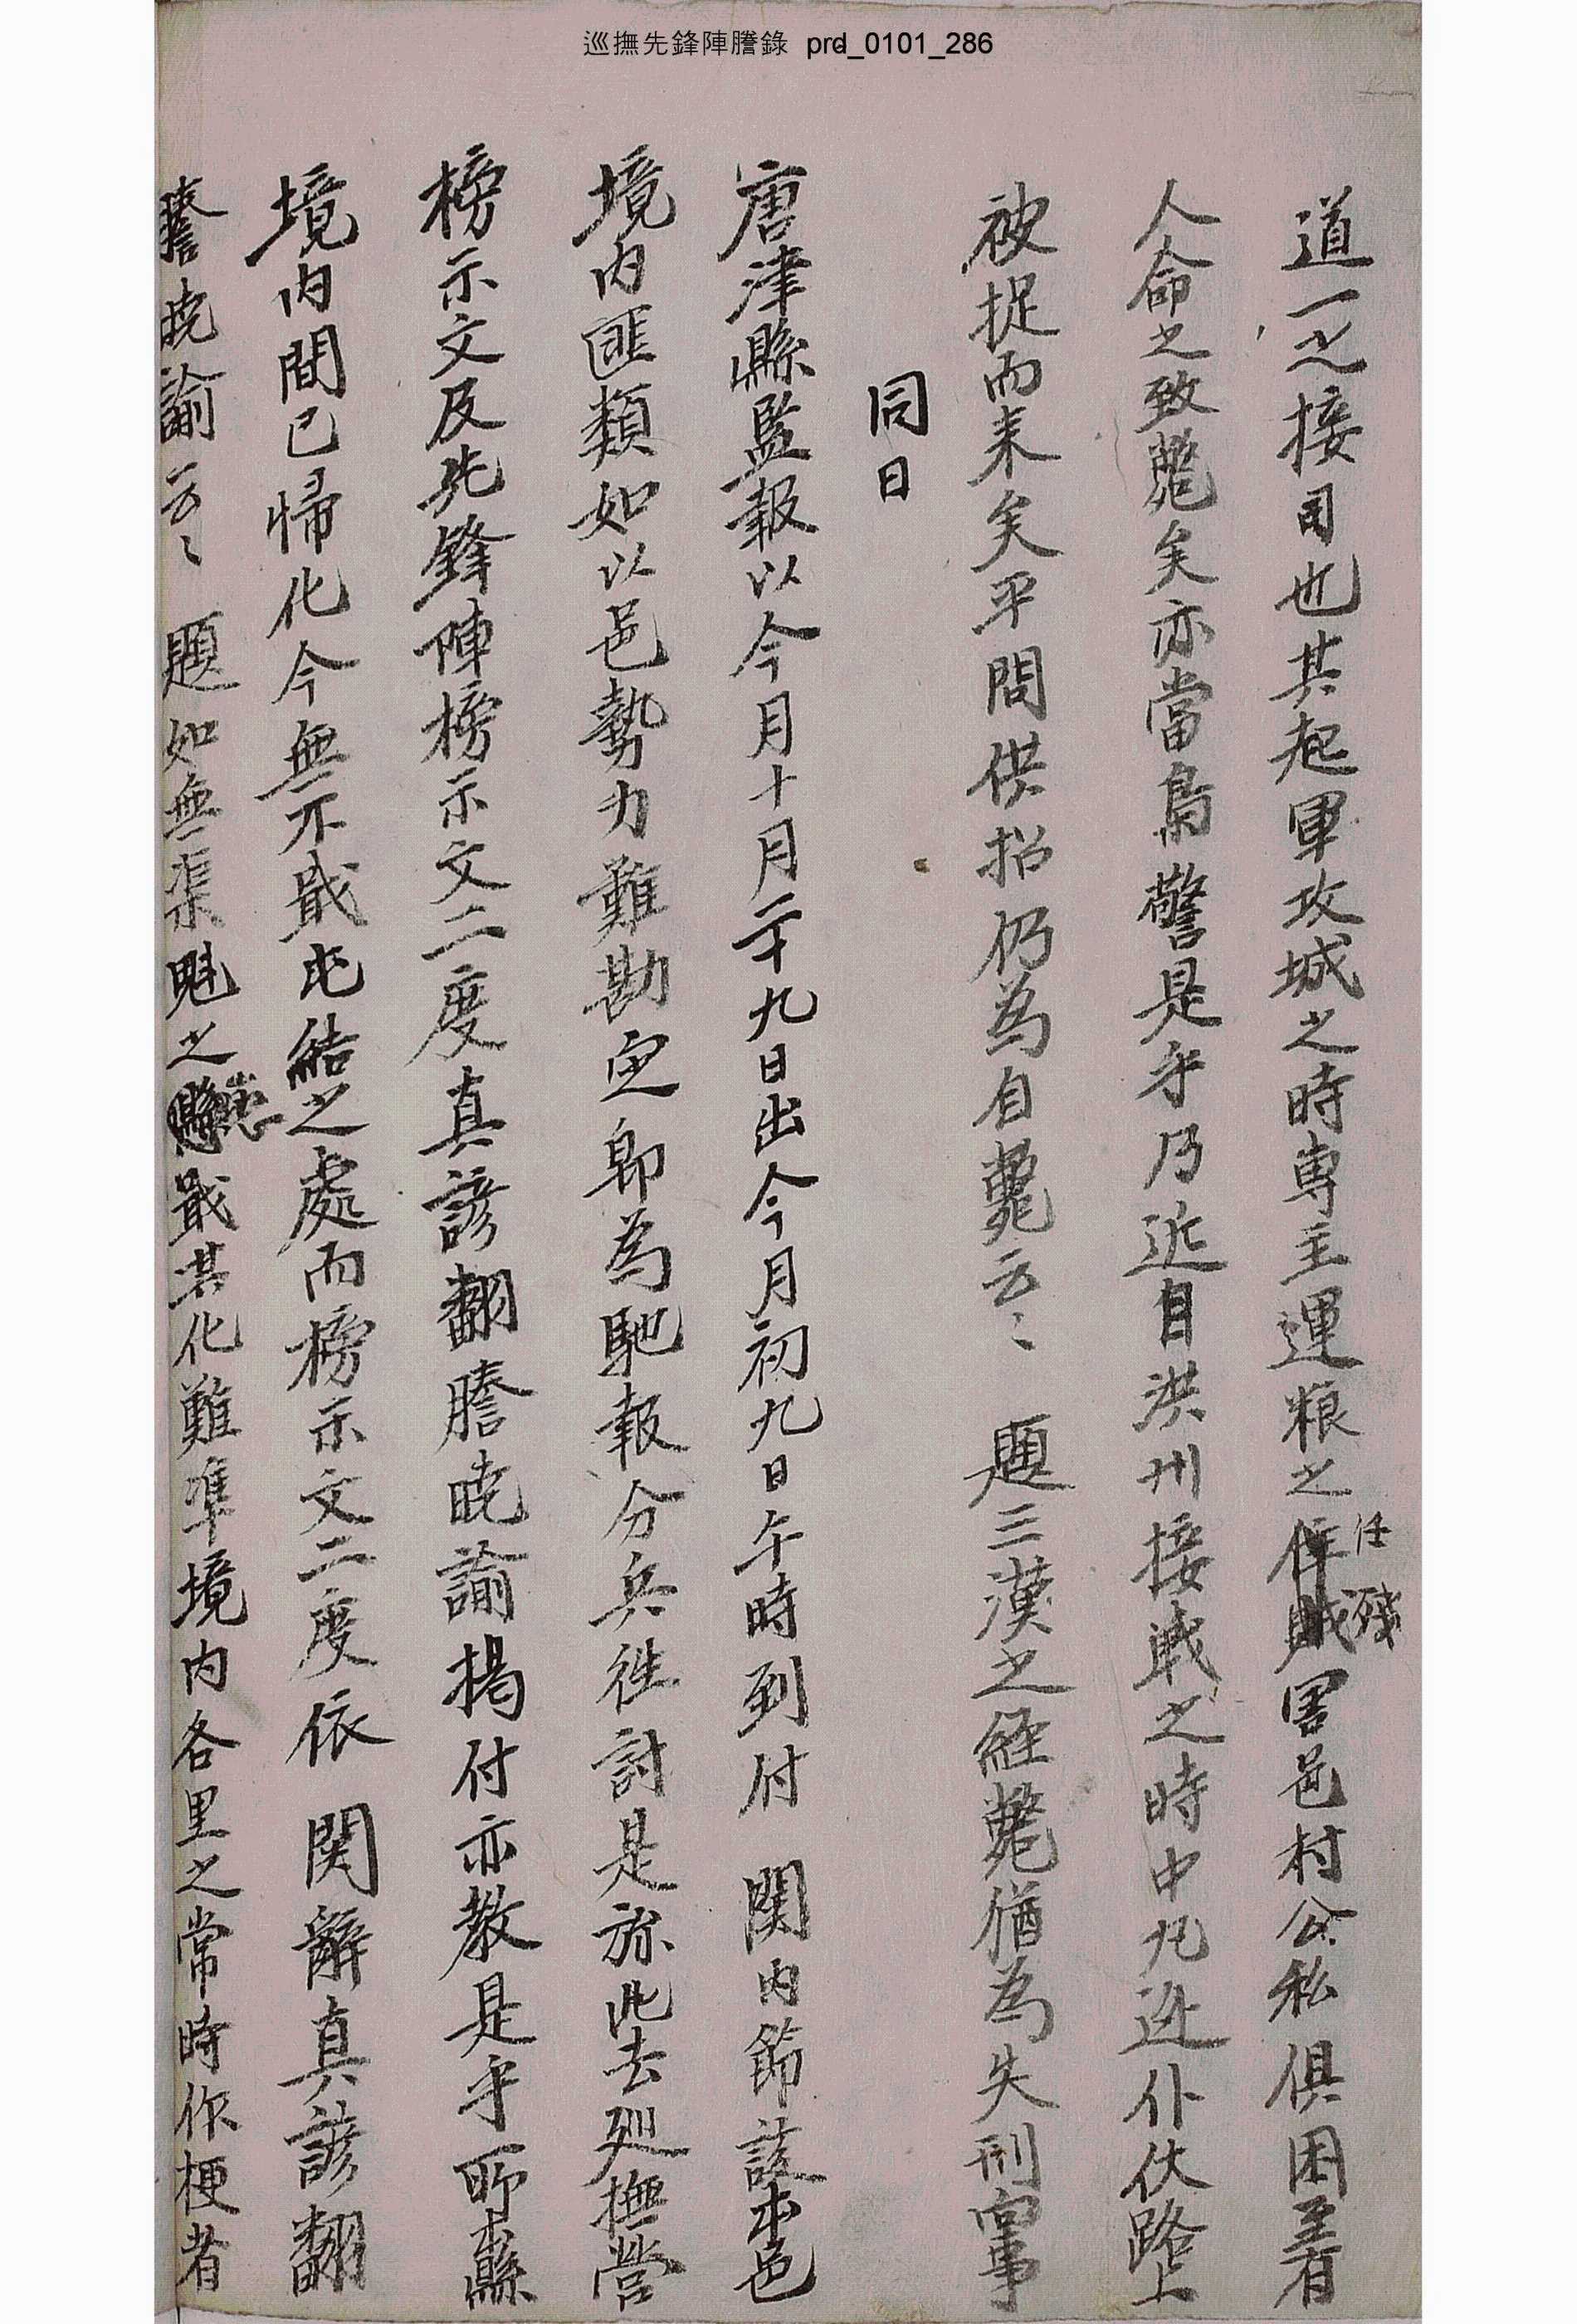 巡撫先鋒陣謄錄 prd_0101_286
道一之接司也其起軍攻城之時專主運粮之任殘害邑村公私俱困著有
人命之致斃矣亦當梟警是乎乃近自洪州接戰之時中丸迸仆伏路上
被捉而来矣平問供招仍為自斃云〻 題三漢之經斃猶為失刑向事
同日
唐津縣監報以今月十月二十九日出今月初九日午時到付 関内節該本邑
境内匪類如以邑勢力難勘定卽為馳報分兵往討是旀此去廵撫營
榜示文及先鋒陣榜示文二度真諺翻謄曉諭揭付亦教是乎所縣
境内間已歸化今無不戢屯結之處而榜示文二度依 関辭真諺翻
謄曉諭云〻 題如無渠魁之懲戢其化難準境内各里之常時作梗者